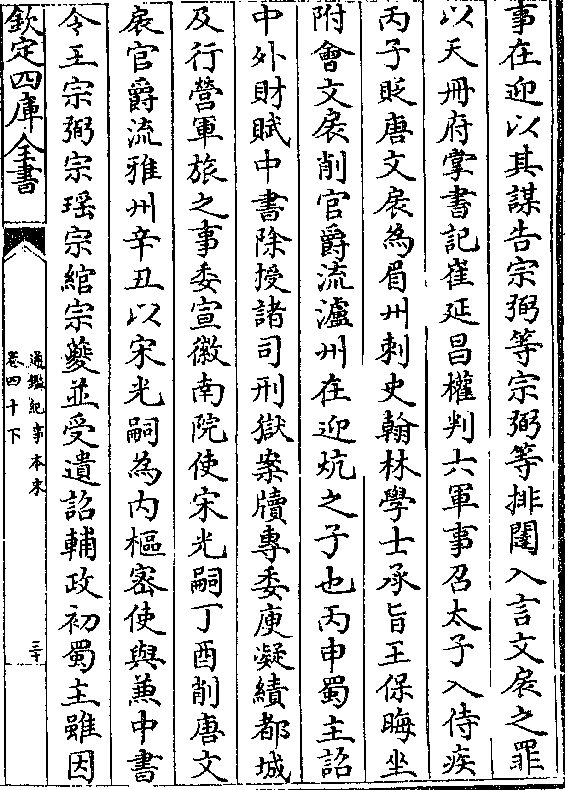 事在迎以其謀告宗弼等宗弼等排闥入言文扆之罪
以天冊府掌書記崔延昌權判六軍事召太子入侍疾
丙子貶唐文扆為眉州刺史翰林學士承旨王保晦坐
附會文扆削官爵流瀘州在迎炕之子也丙申蜀主詔
中外財賦中書除授諸司刑獄案牘專委庾凝績都城
及行營軍旅之事委宣徽南院使宋光嗣丁酉削唐文
扆官爵流雅州辛丑以宋光嗣為内樞密使與兼中書
令王宗弼宗瑶宗綰宗夔並受遺詔輔政初蜀主雖因
欽定四庫全書
通鑑紀事本末
卷四十下
三十